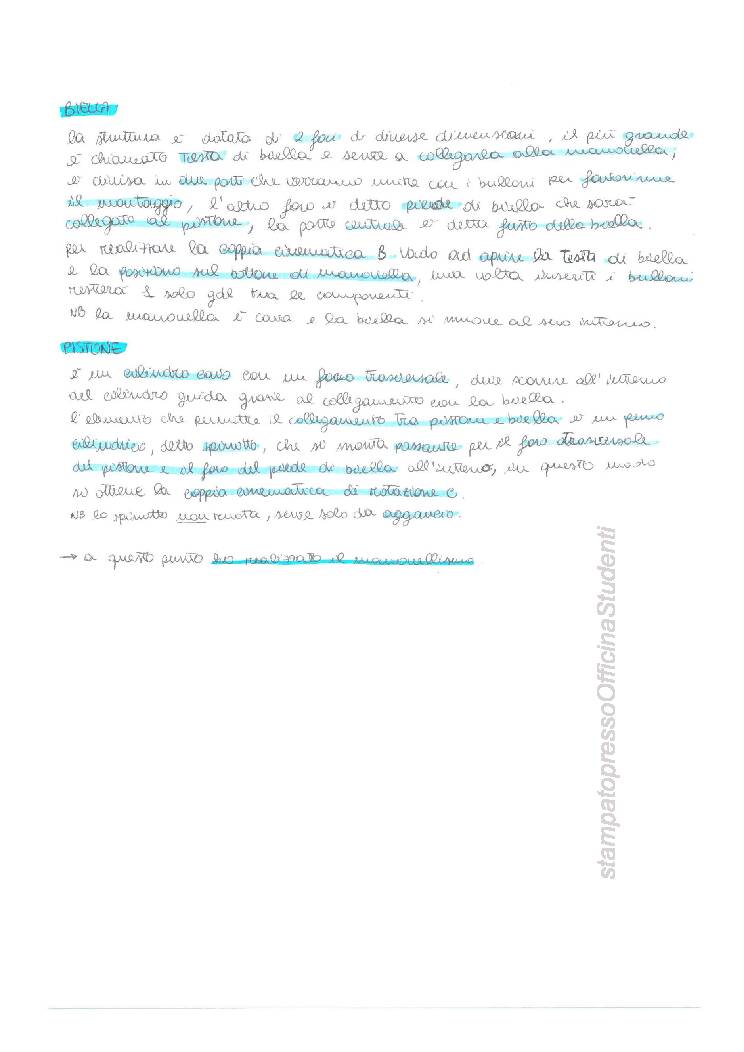 BIELLA
la struttura è dotata di 2 fori di diverse dimensioni, il più grande
è chiamato testa di biella e serve a collegarla alla manovella,
è divisa in due parti che verranno unite con i bulloni per favorirne
il montaggio, l'altro foro è detto piede di biella che sarà
collegato al pistone, la parte centrale è detta fusto della biella.
per realizzare la coppia cinematica B vado ad aprire la testa di biella
e la posiziono sul bottone di manovella, una volta inseriti i bulloni
resterà 1 solo gdl tra le componenti.
NB la manovella è cava e la biella si muove al suo interno.
PISTONE
è un cilindro cavo con un foro trasversale, deve scorrere all'interno
del cilindro guida grazie al collegamento con la biella.
l'elemento che permette il collegamento tra pistone e biella è un perno
cilindrico, detto spinotto, che si monta passante per il foro trasversale
del pistone e al foro del piede di biella all'interno, in questo modo
si ottiene la coppia cinematica di rotazione C.
NB lo spinotto non ruota, serve solo da aggancio.
→ a questo punto ho realizzato il manovellismo
stampatopressoOfficinaStudenti